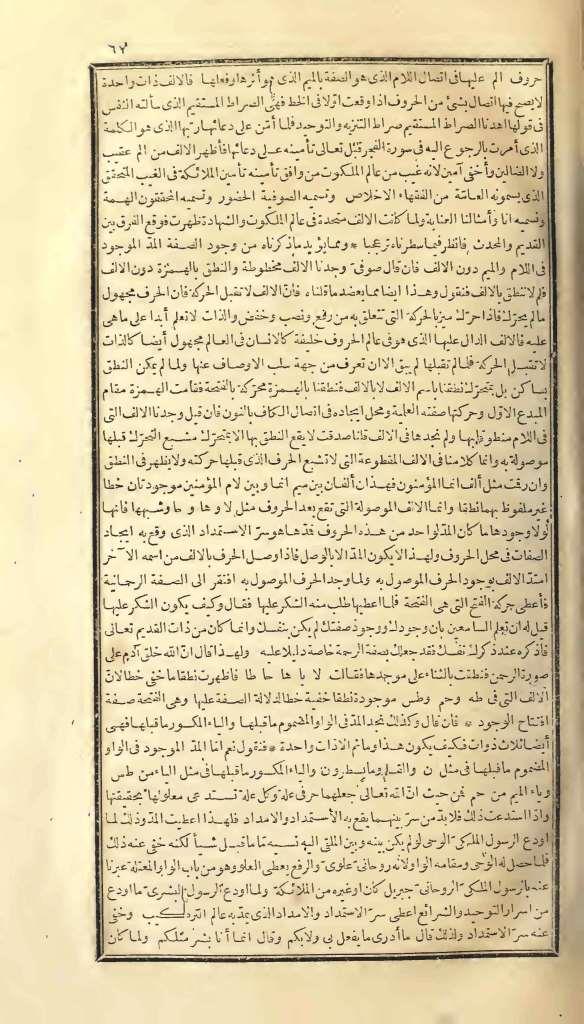 ٦٧
حروف الم عليها فى اتصال اللام الذى هو الصفة بالميم الذى هو أثرها وفعلها فالالف ذات واحدة
لا يصح فيها اتصال بشئ من الحروف اذا وقعت أولا فى الخط فهى الصراط المستقيم الذى سألته النفس
فى قولها اهدنا الصراط المستقيم صراط التنزيه والتوحيد فلما أمّن على دعائها ربها الذى هو الكلمة
الذى أمرت بالرجوع اليه فى سورة الفجر قبل تعالى تأمينه على دعائها فأظهر الالف من الم عقيب
ولا الضالين وأخفى آمين لانه غيب من عالم الملكوت من وافق تأمينه تأمين الملائكة فى الغيب المتحقق
الذى يسمونه العامّة من الفقهاء الاخلاص وتسميه الصوفية الحضور وتسميه المحققون الهمة
ونسميه أنا وأمثالنا العناية ولما كانت الالف متحدة فى عالم الملكوت والشهادة ظهرت فوقع الفرق بين
القديم والمحدث فانظر فيما سطرناه ترعجبا * ومما يؤيد ما ذكرناه من وجود الصفة المدّ الموجود
فى اللام والميم دون الالف فان قال صوفى وجدنا الالف مخطوطة والنطق بالهمزة دون الالف
فلم لا ننطق بالالف فنقول وهذا أيضا مما يعضد ما قلناه فانّ الالف لا تقبل الحركة فان الحرف مجهول
ما لم يحرّك فاذا حرّك ميز بالحركة التى تتعلق به من رفع ونصب وخفض والذات لا تعلم أبدا على ما هى
عليه فالالف الدال عليها الذى هو فى عالم الحروف خليفة كالانسان فى العالم مجهول أيضا كالذات
لا تقبل الحركة فلما لم تقبلها لم يبق الا ان تعرف من جهة سلب الاوصاف عنها ولما لم يمكن النطق
بساكن بل بمتحرّك نطقنا باسم الالف لا بالالف فنطقنا بالهمزة محرّكة بالفتحة فقامت الهمزة مقام
المبدع الاوّل وحركتها صفته العلمية ومحل ايجاده فى اتصال الكاف بالنون فان قيل وجدنا الالف التى
فى اللام منطوقا بها ولم نجدها فى الالف قلنا صدقت لا يقع النطق بها الا بمتحرّك مشبع التحرّك قبلها
موصولة به وانما كلامنا فى الالف المقطوعة التى لا تشبع الحرف الذى قبلها حركته ولا يظهر فى النطق
وان رقت مثل ألف انما المؤمنون فهذان ألفان بين ميم انما وبين لام المؤمنين موجودتان خطا
غير ملفوظ بهما نطقا وانما الالف الموصولة التى تقع بعد الحروف مثل لا وها وحا وشبهها فانها
أولا وجودها ما كان المدّ لواحد من هذه الحروف فمدّها هو سرّ الاستمداد الذى وقع به ايجاد
الصفات فى محل الحروف ولهذا لا يكون المدّ الا بالوصل فاذا وصل الحرف بالالف من اسمه الآخر
امتدّ الالف بوجود الحرف الموصول به ولما وجد الحرف الموصول به افتقر الى الصفة الرحمانية
فأعطى حركة الفتح التى هى الفتحة فلما أعطيها طلب منه الشكر عليها فقال وكيف يكون الشكر عليها
قيل له أن تعلم السامعين بان وجودك ووجود صفتك لم يكن بنفسك وانما كان من ذات القديم تعالى
فاذكره عند ذكرك نفسك فقد جعلك بصفة الرحمة خاصة دليلا عليه ولهذا قال انّ الله خلق آدم على
صورة الرحمن فنطقت بالثناء على موجدها فقالت لا يا ها حا طا فأظهرت نطقا ما خفى خطا لانّ
الالف التى فى طه وحم وطس موجودة نطقا خفية خطا لدلالة الصفة عليها وهى الفتحة صفة
افتتاح الوجود * فان قال وكذلك نجد المدّ فى الواو المضموم ما قبلها والياء المكسور ما قبلها فهى
أيضا ثلاث ذوات فكيف يكون هذا وما ثم الا ذات واحدة * فنقول نعم امّا المدّ الموجود فى الواو
المضموم ما قبلها فى مثل ن والقلم وما يسطرون والياء المكسور ما قبلها فى مثل الياء من طس
وياء الميم من حم فمن حيث انّ الله تعالى جعلهما حرفى علة وكل علة تستدعى معلولها بحقيقتها
واذا استدعت ذلك فلا بدّ من سرّ بينهما يقع به الاستمداد والامداد فلهذا أعطيت المدّ وذلك لما
أودع الرسول الملكىّ الوحى لو لم يكن بينه وبين الملقى اليه نسبة مّا ما قبل شيأ لكنه خفى عنه ذلك
فلما حصل له الوحى ومقامه الواو لانه روحانى علوىّ والرفع يعطى العلو وهو من باب الواو المعتلة عبرنا
عنه بالرسول الملكىّ الروحانى جبريل كان أو غيره من الملائكة ولما أودع الرسول البشرىّ ما أودع
من أسرار التوحيد والشرائع أعطى سرّ الاستمداد والامداد الذى يمدّ به عالم التركيب وخفى
عنه سرّ الاستمداد ولذلك قال ما أدرى ما يفعل بى ولا بكم وقال انما أنا بشر مثلكم ولما كان